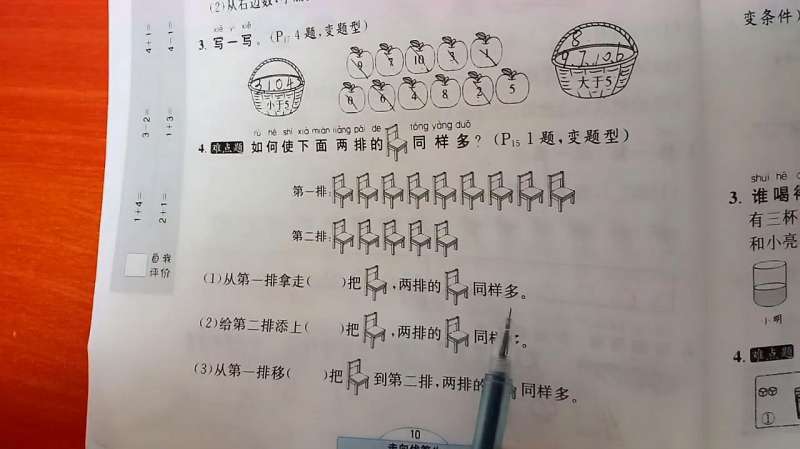 4+1=
4-1=
3-2=
1+3=
1+4=
2+1=
自我
评价
(2)从右边数,
xiě yi xiě
3. 写一写。(P₁₇ 4题,变题型)
9 7 10 3 1
0 6 4 8 2 5
3 1 0 4
小于5
8
9 7 10 6
大于5
rú hé shǐ xià miàn liǎng pái de tóng yàng duō
4. 难点题 如何使下面两排的 同样多? (P₁₅ 1题,变题型)
第一排:
第二排:
(1)从第一排拿走( )把 ,两排的 同样多。
(2)给第二排添上( )把 ,两排的 同样 。
(3)从第一排移( )把 到第二排,两排的 同样多。
10
变条件)
shuí hē
3. 谁喝得
有三杯
和小亮
小明
4. 难点题
①